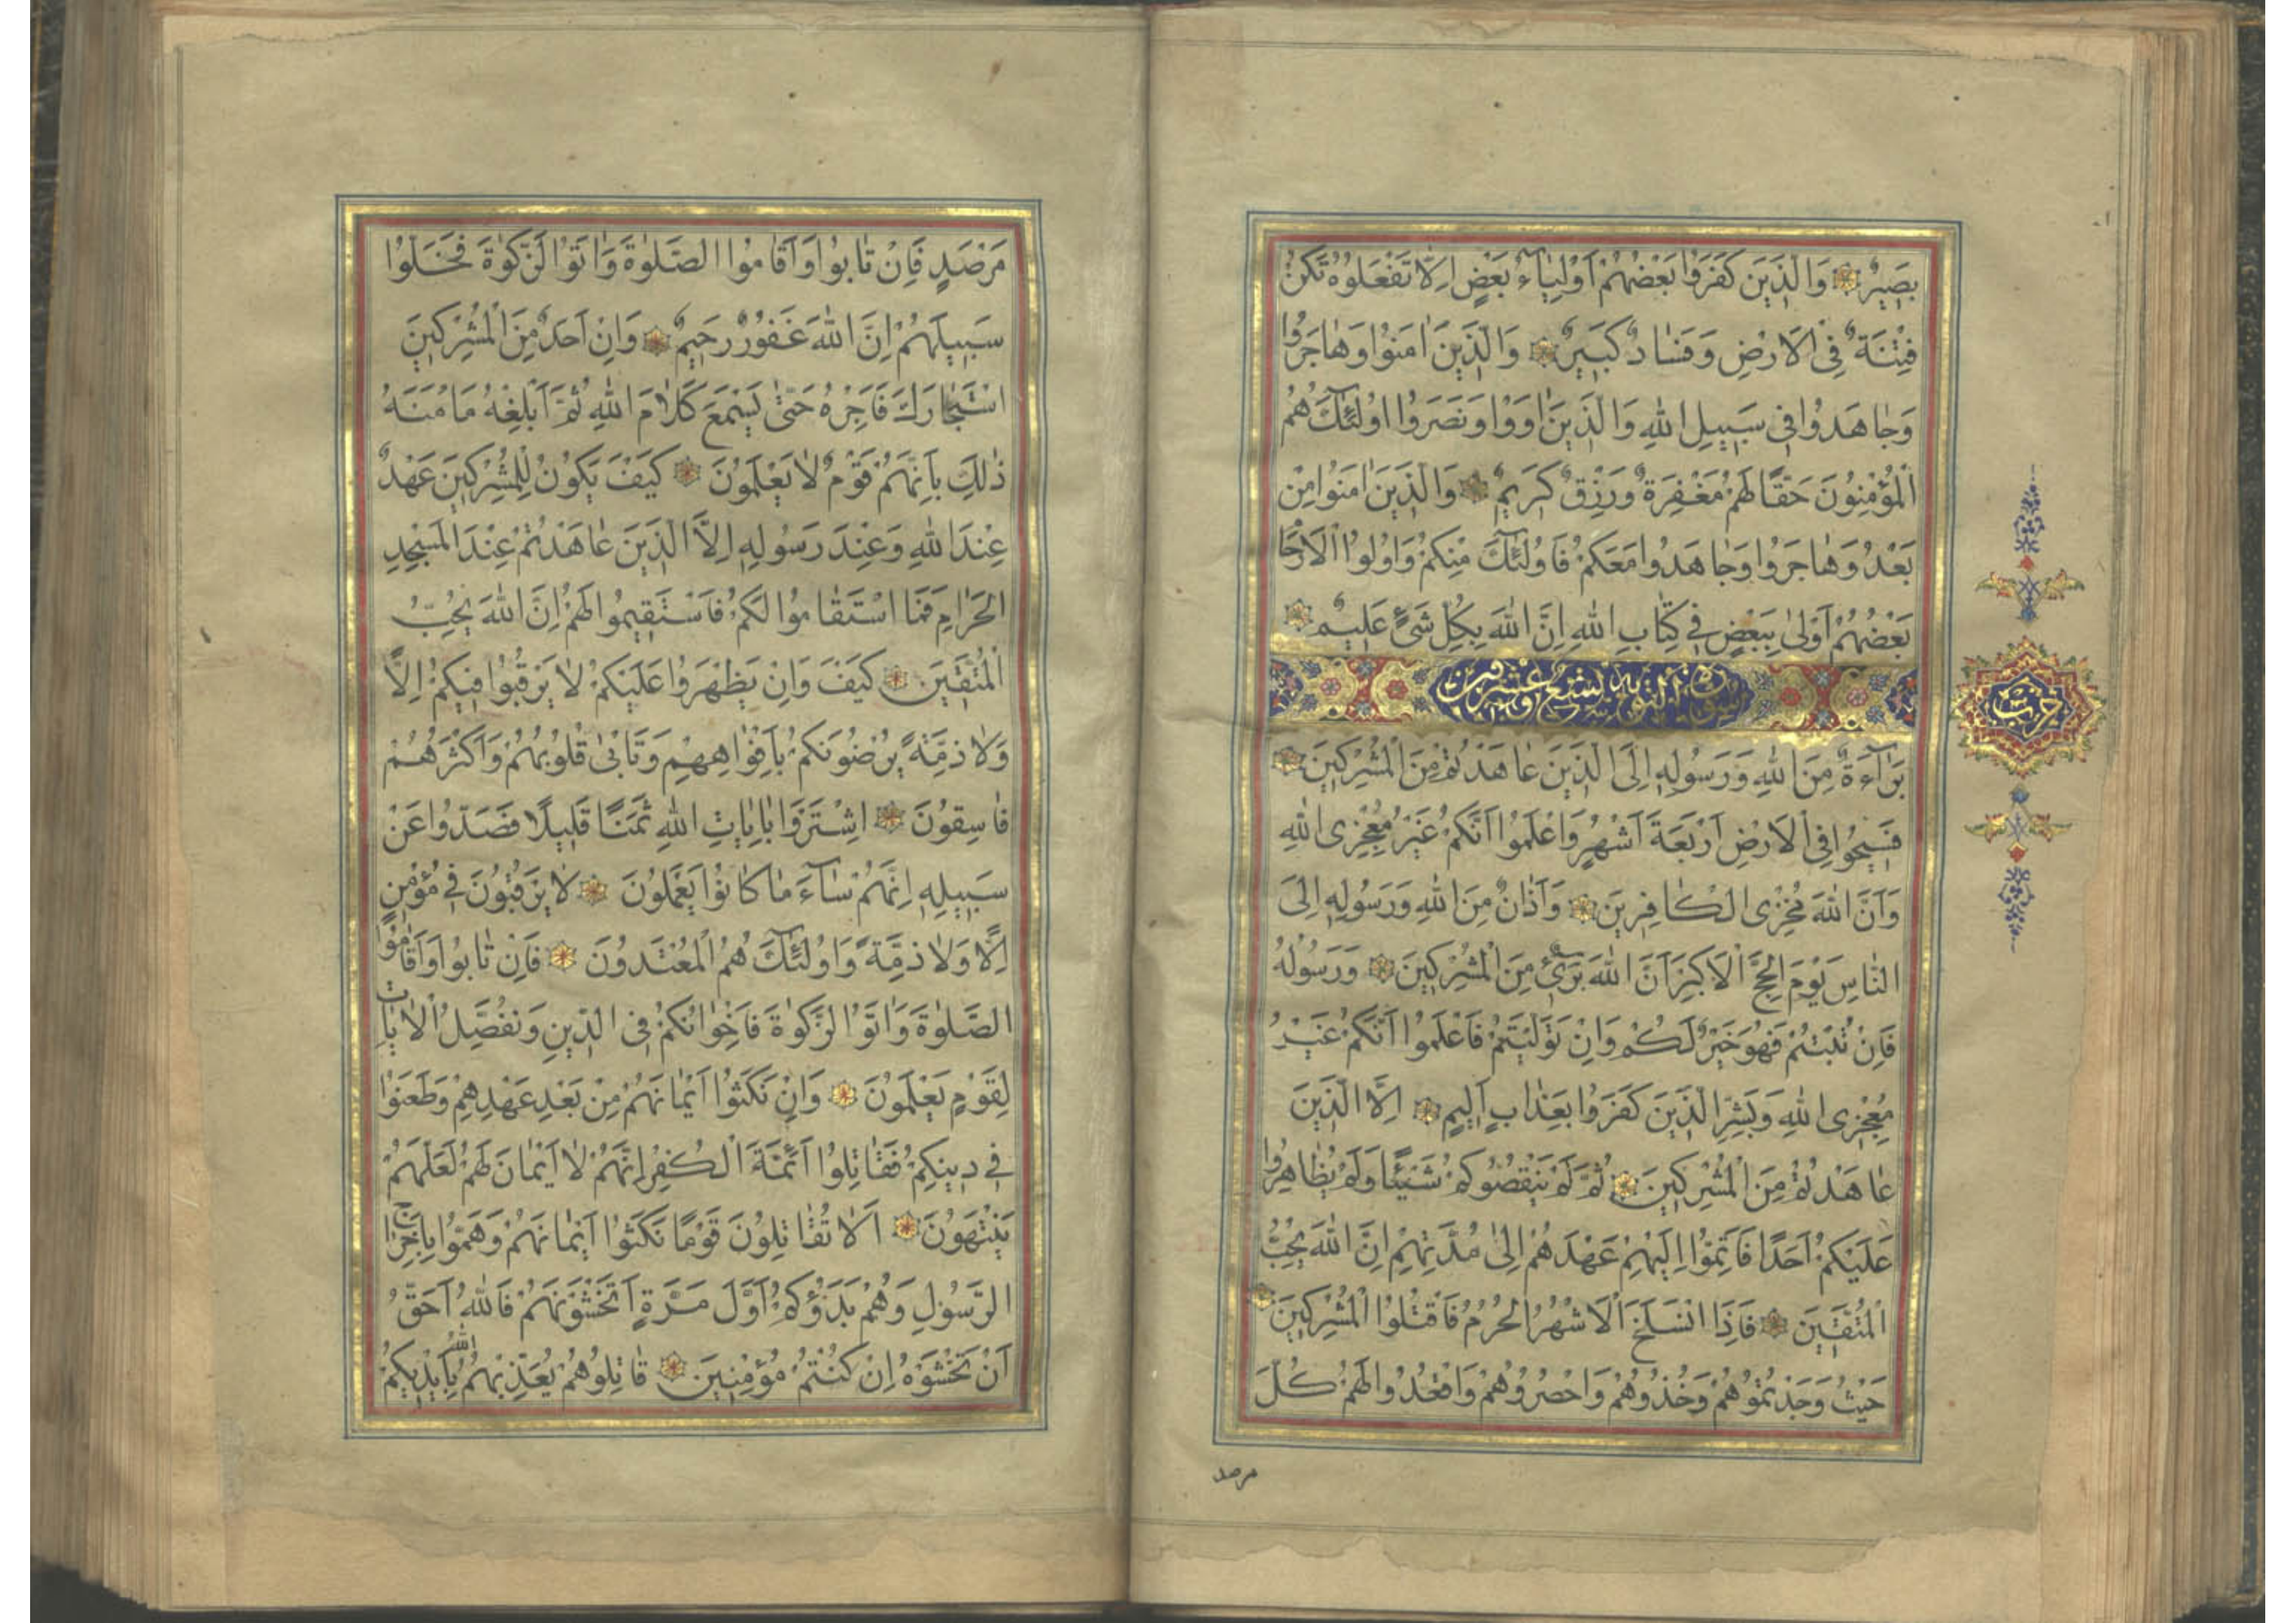 بَصِيرٌ وَالَّذِينَ كَفَرُوا بَعْضُهُمْ اَوْلِيَآءُ بَعْضٍ اِلَّا تَفْعَلُوهُ تَكُنْ
فِتْنَةٌ فِي الْاَرْضِ وَفَسَادٌ كَبِيرٌ وَالَّذِينَ اٰمَنُوا وَهَاجَرُوا
وَجَاهَدُوا فِي سَبِيلِ اللّٰهِ وَالَّذِينَ اٰوَوْا وَنَصَرُوا اُولٰٓئِكَ هُمُ
الْمُؤْمِنُونَ حَقًّا لَهُمْ مَغْفِرَةٌ وَرِزْقٌ كَرِيمٌ وَالَّذِينَ اٰمَنُوا مِنْ
بَعْدُ وَهَاجَرُوا وَجَاهَدُوا مَعَكُمْ فَاُولٰٓئِكَ مِنْكُمْ وَاُولُوا الْاَرْحَا
بَعْضُهُمْ اَوْلٰى بِبَعْضٍ فِي كِتَابِ اللّٰهِ اِنَّ اللّٰهَ بِكُلِّ شَيْءٍ عَلِيمٌ
سورة التوبة تسع وعشرون
حزب
بَرَآءَةٌ مِنَ اللّٰهِ وَرَسُولِهِ اِلَى الَّذِينَ عَاهَدْتُمْ مِنَ الْمُشْرِكِينَ
فَسِيحُوا فِي الْاَرْضِ اَرْبَعَةَ اَشْهُرٍ وَاعْلَمُوا اَنَّكُمْ غَيْرُ مُعْجِزِي اللّٰهِ
وَاَنَّ اللّٰهَ مُخْزِي الْكَافِرِينَ وَاَذَانٌ مِنَ اللّٰهِ وَرَسُولِهِ اِلَى
النَّاسِ يَوْمَ الْحَجِّ الْاَكْبَرِ اَنَّ اللّٰهَ بَرِيٓءٌ مِنَ الْمُشْرِكِينَ وَرَسُولُهُ
فَاِنْ تُبْتُمْ فَهُوَ خَيْرٌ لَكُمْ وَاِنْ تَوَلَّيْتُمْ فَاعْلَمُوا اَنَّكُمْ غَيْرُ
مُعْجِزِي اللّٰهِ وَبَشِّرِ الَّذِينَ كَفَرُوا بِعَذَابٍ اَلِيمٍ اِلَّا الَّذِينَ
عَاهَدْتُمْ مِنَ الْمُشْرِكِينَ ثُمَّ لَمْ يَنْقُصُوكُمْ شَيْئًا وَلَمْ يُظَاهِرُوا
عَلَيْكُمْ اَحَدًا فَاَتِمُّوا اِلَيْهِمْ عَهْدَهُمْ اِلٰى مُدَّتِهِمْ اِنَّ اللّٰهَ يُحِبُّ
الْمُتَّقِينَ فَاِذَا انْسَلَخَ الْاَشْهُرُ الْحُرُمُ فَاقْتُلُوا الْمُشْرِكِينَ
حَيْثُ وَجَدْتُمُوهُمْ وَخُذُوهُمْ وَاحْصُرُوهُمْ وَاقْعُدُوا لَهُمْ كُلَّ
مرصد
مَرْصَدٍ فَاِنْ تَابُوا وَاَقَامُوا الصَّلٰوةَ وَاٰتَوُا الزَّكٰوةَ فَخَلُّوا
سَبِيلَهُمْ اِنَّ اللّٰهَ غَفُورٌ رَحِيمٌ وَاِنْ اَحَدٌ مِنَ الْمُشْرِكِينَ
اسْتَجَارَكَ فَاَجِرْهُ حَتّٰى يَسْمَعَ كَلَامَ اللّٰهِ ثُمَّ اَبْلِغْهُ مَاْمَنَهُ
ذٰلِكَ بِاَنَّهُمْ قَوْمٌ لَا يَعْلَمُونَ كَيْفَ يَكُونُ لِلْمُشْرِكِينَ عَهْدٌ
عِنْدَ اللّٰهِ وَعِنْدَ رَسُولِهِ اِلَّا الَّذِينَ عَاهَدْتُمْ عِنْدَ الْمَسْجِدِ
الْحَرَامِ فَمَا اسْتَقَامُوا لَكُمْ فَاسْتَقِيمُوا لَهُمْ اِنَّ اللّٰهَ يُحِبُّ
الْمُتَّقِينَ كَيْفَ وَاِنْ يَظْهَرُوا عَلَيْكُمْ لَا يَرْقُبُوا فِيكُمْ اِلًّا
وَلَا ذِمَّةً يُرْضُونَكُمْ بِاَفْوَاهِهِمْ وَتَاْبٰى قُلُوبُهُمْ وَاَكْثَرُهُمْ
فَاسِقُونَ اِشْتَرَوْا بِاٰيَاتِ اللّٰهِ ثَمَنًا قَلِيلًا فَصَدُّوا عَنْ
سَبِيلِهِ اِنَّهُمْ سَآءَ مَا كَانُوا يَعْمَلُونَ لَا يَرْقُبُونَ فِي مُؤْمِنٍ
اِلًّا وَلَا ذِمَّةً وَاُولٰٓئِكَ هُمُ الْمُعْتَدُونَ فَاِنْ تَابُوا وَاَقَامُوا
الصَّلٰوةَ وَاٰتَوُا الزَّكٰوةَ فَاِخْوَانُكُمْ فِي الدِّينِ وَنُفَصِّلُ الْاٰيَاتِ
لِقَوْمٍ يَعْلَمُونَ وَاِنْ نَكَثُوا اَيْمَانَهُمْ مِنْ بَعْدِ عَهْدِهِمْ وَطَعَنُوا
فِي دِينِكُمْ فَقَاتِلُوا اَئِمَّةَ الْكُفْرِ اِنَّهُمْ لَا اَيْمَانَ لَهُمْ لَعَلَّهُمْ
يَنْتَهُونَ اَلَا تُقَاتِلُونَ قَوْمًا نَكَثُوا اَيْمَانَهُمْ وَهَمُّوا بِاِخْرَاجِ
الرَّسُولِ وَهُمْ بَدَؤُكُمْ اَوَّلَ مَرَّةٍ اَتَخْشَوْنَهُمْ فَاللّٰهُ اَحَقُّ
اَنْ تَخْشَوْهُ اِنْ كُنْتُمْ مُؤْمِنِينَ قَاتِلُوهُمْ يُعَذِّبْهُمُ اللّٰهُ بِاَيْدِيكُمْ